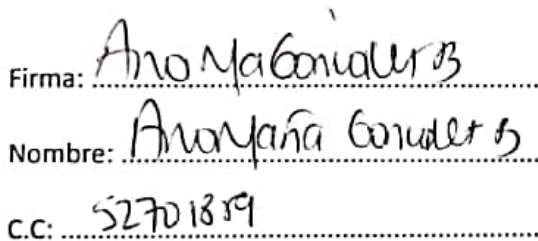 Firma: Ana Ma Gonzalez B
Nombre: Ana Maria Gonzalez B
C.C: 52701859